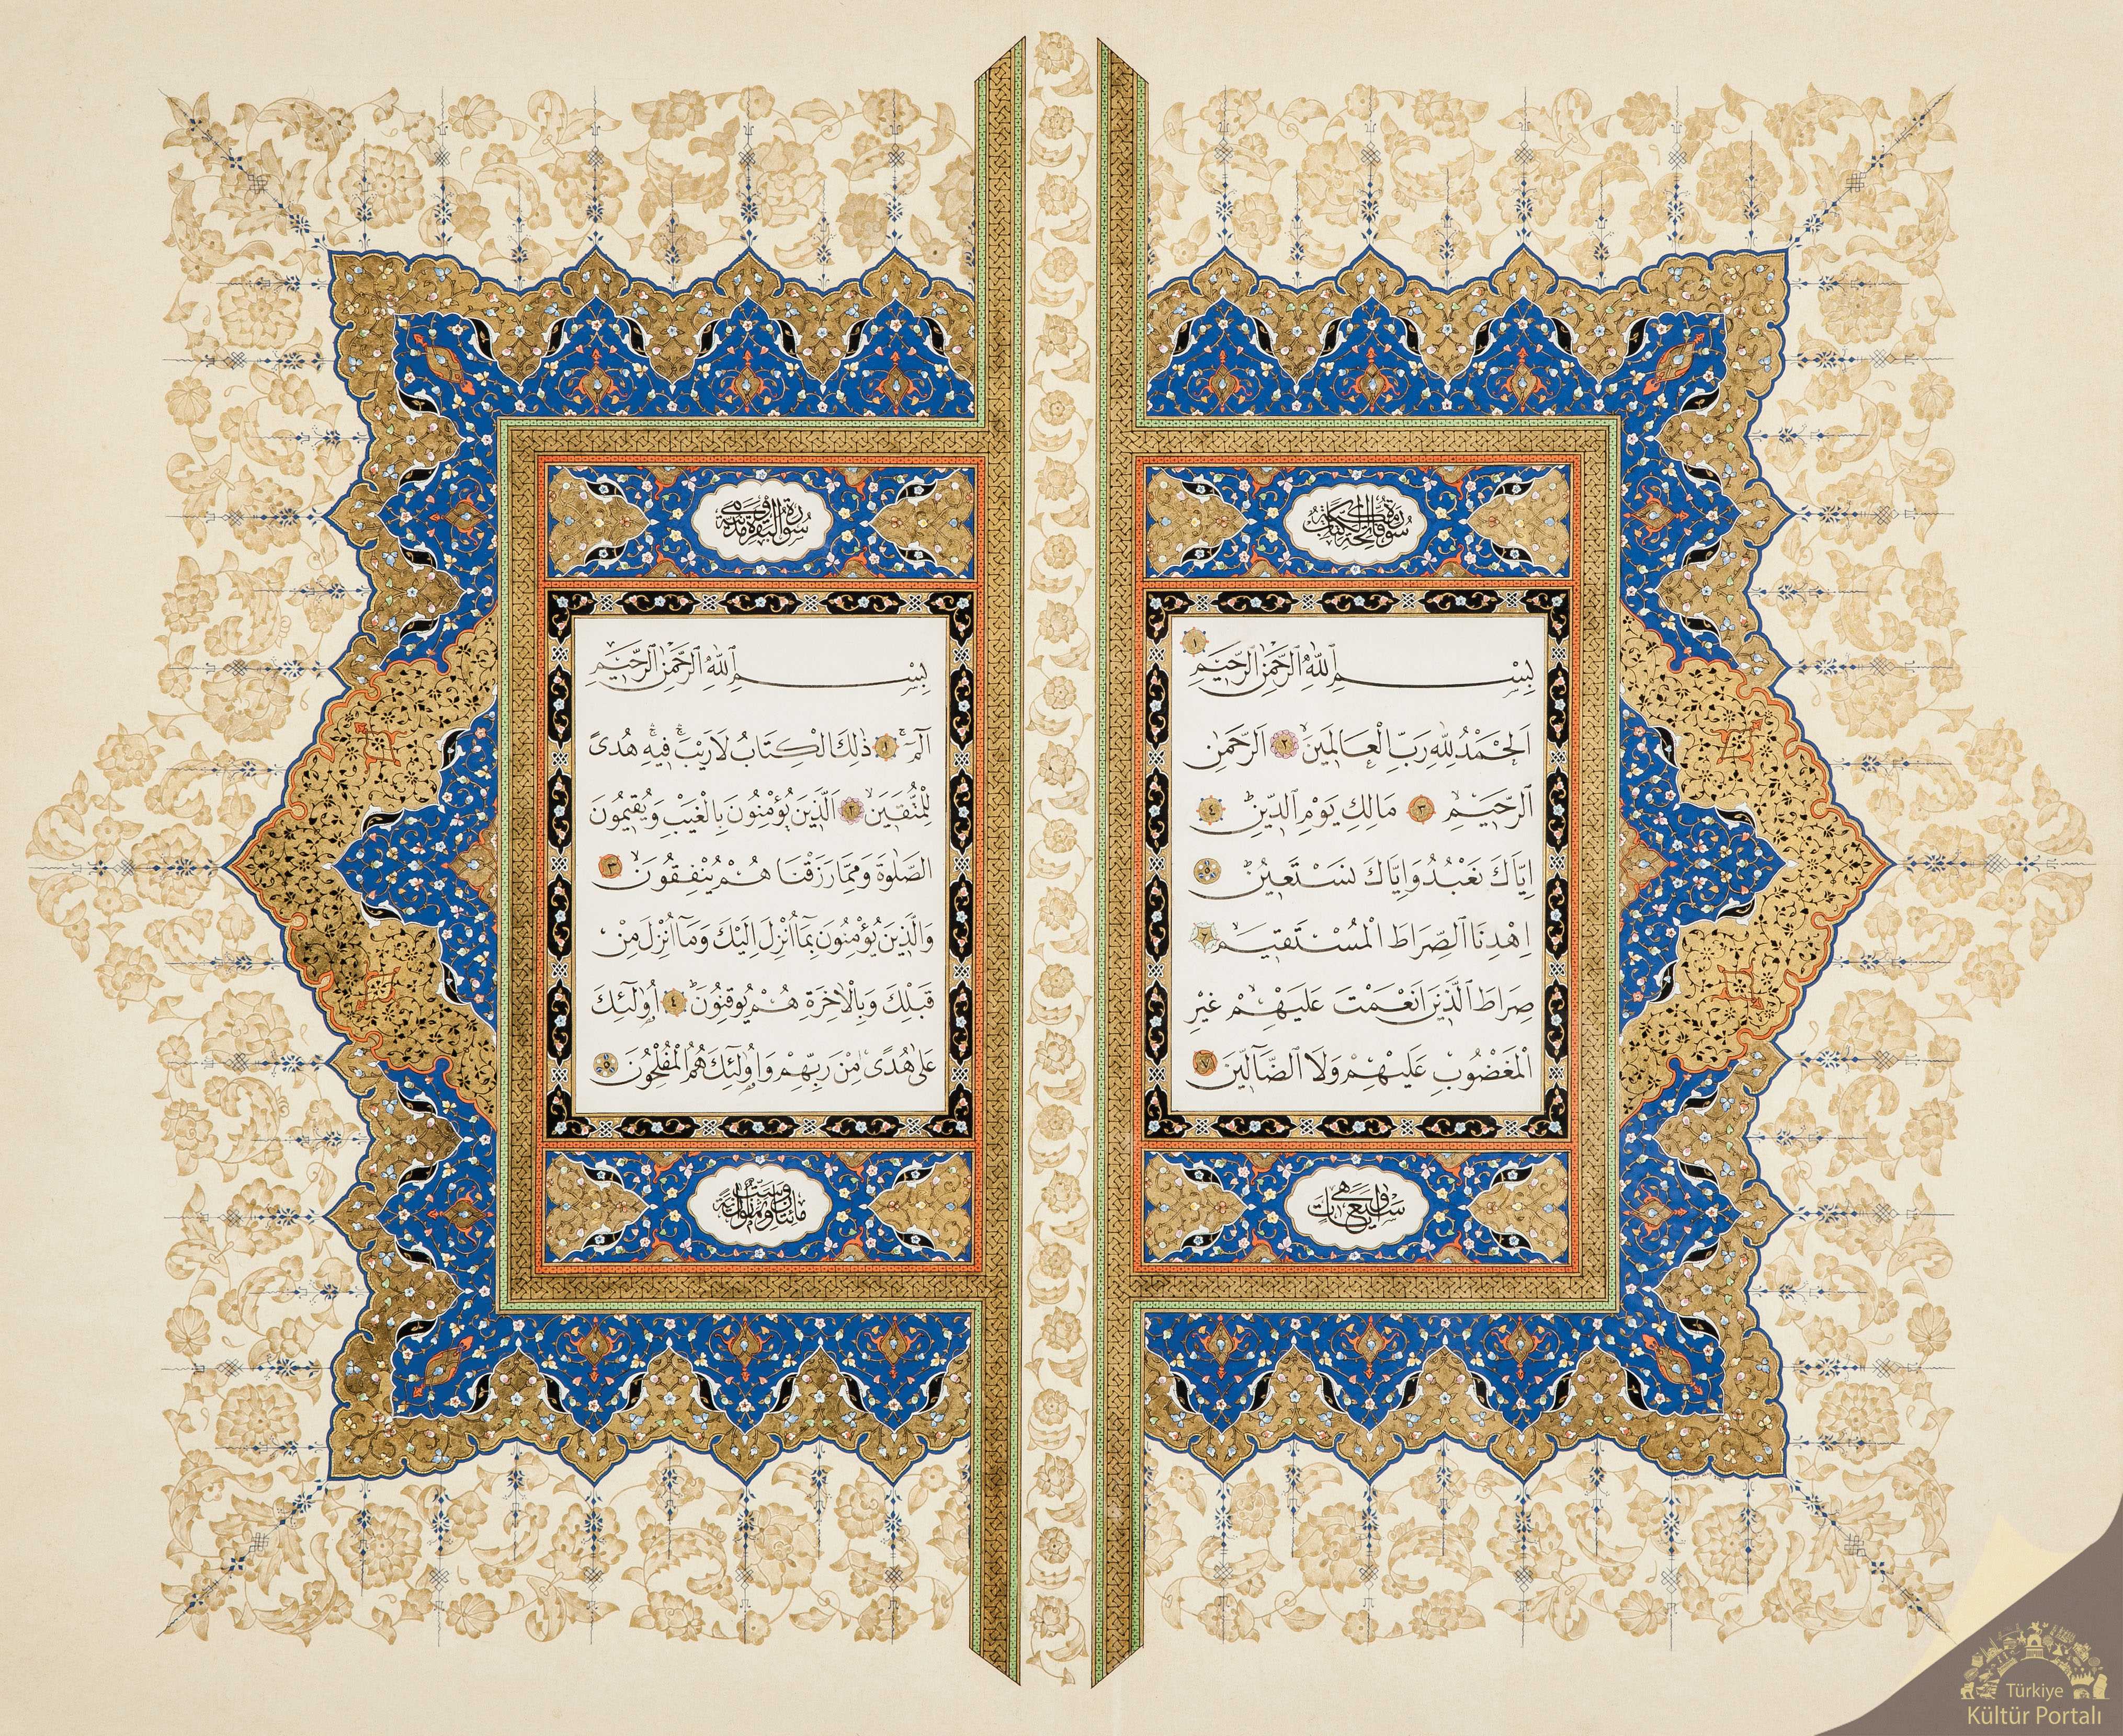 سورة فاتحة الكتاب مكية
بِسْمِ اللّٰهِ الرَّحْمٰنِ الرَّحِيمِ ١
اَلْحَمْدُ لِلّٰهِ رَبِّ الْعَالَمِينَ ٢ اَلرَّحْمٰنِ
الرَّحِيمِ ٣ مَالِكِ يَوْمِ الدِّينِ ٤
اِيَّاكَ نَعْبُدُ وَاِيَّاكَ نَسْتَعِينُ ٥
اِهْدِنَا الصِّرَاطَ الْمُسْتَقِيمَ
صِرَاطَ الَّذِينَ اَنْعَمْتَ عَلَيْهِمْ غَيْرِ
الْمَغْضُوبِ عَلَيْهِمْ وَلَا الضَّٓالِّينَ ٧
وهي سبع آيات
سورة البقرة مدنية وهي
بِسْمِ اللّٰهِ الرَّحْمٰنِ الرَّحِيمِ
الٓمٓ ١ ذٰلِكَ الْكِتَابُ لَا رَيْبَ فِيهِ هُدًى
لِلْمُتَّقِينَ ٢ اَلَّذِينَ يُؤْمِنُونَ بِالْغَيْبِ وَيُقِيمُونَ
الصَّلٰوةَ وَمِمَّا رَزَقْنَاهُمْ يُنْفِقُونَ ٣
وَالَّذِينَ يُؤْمِنُونَ بِمَٓا اُنْزِلَ اِلَيْكَ وَمَٓا اُنْزِلَ مِنْ
قَبْلِكَ وَبِالْاٰخِرَةِ هُمْ يُوقِنُونَ ٤ اُو۬لٰٓئِكَ
عَلٰى هُدًى مِنْ رَبِّهِمْ وَاُو۬لٰٓئِكَ هُمُ الْمُفْلِحُونَ ٥
مائتان وست وثمانون آية
Türkiye
Kültür Portalı